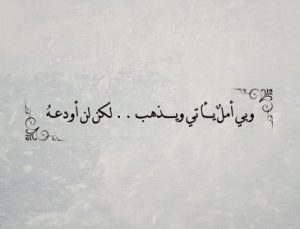 وبي أملٌ يأتي ويذهب . . لكن لن أودعهُ